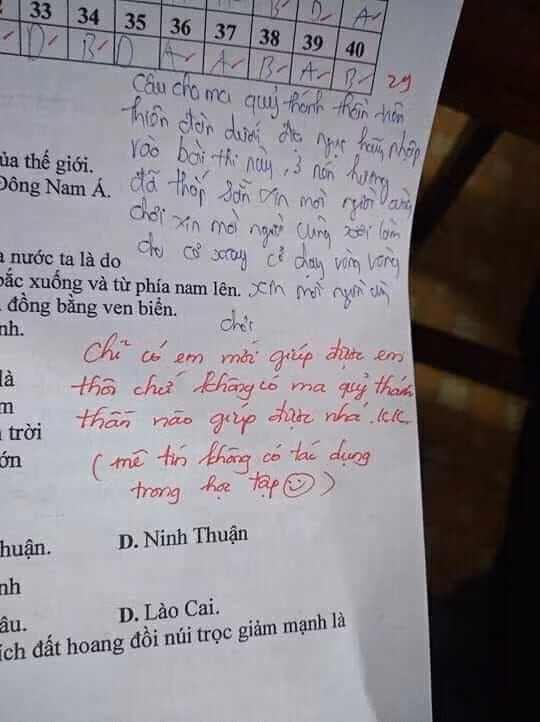 B D A
33 34 35 36 37 38 39 40
D B D A A B A B
29
Cầu cho ma quỷ thánh thần trên
thiên đàn dưới địa ngục hãy nhập
vào bài thi này, 3 nén hương
đã thắp sẵn xin mời người cùng
chơi xin mời người cùng xơi
cơ xoay cơ chạy vòng vòng
xin mời người
chơi
Chỉ có em mới giúp được em
thôi chứ không có ma quỷ thánh
thần nào giúp được nhá.KK
(mê tín không có tác dụng
trong học tập ☺)
ủa thế giới.
Đông Nam Á.
nước ta là do
bắc xuống và từ phía nam lên.
đồng bằng ven biển.
nh.
là
m
trời
ớn
huận.
D. Ninh Thuận
nh
âu.
D. Lào Cai.
ích đất hoang đồi núi trọc giảm mạnh là